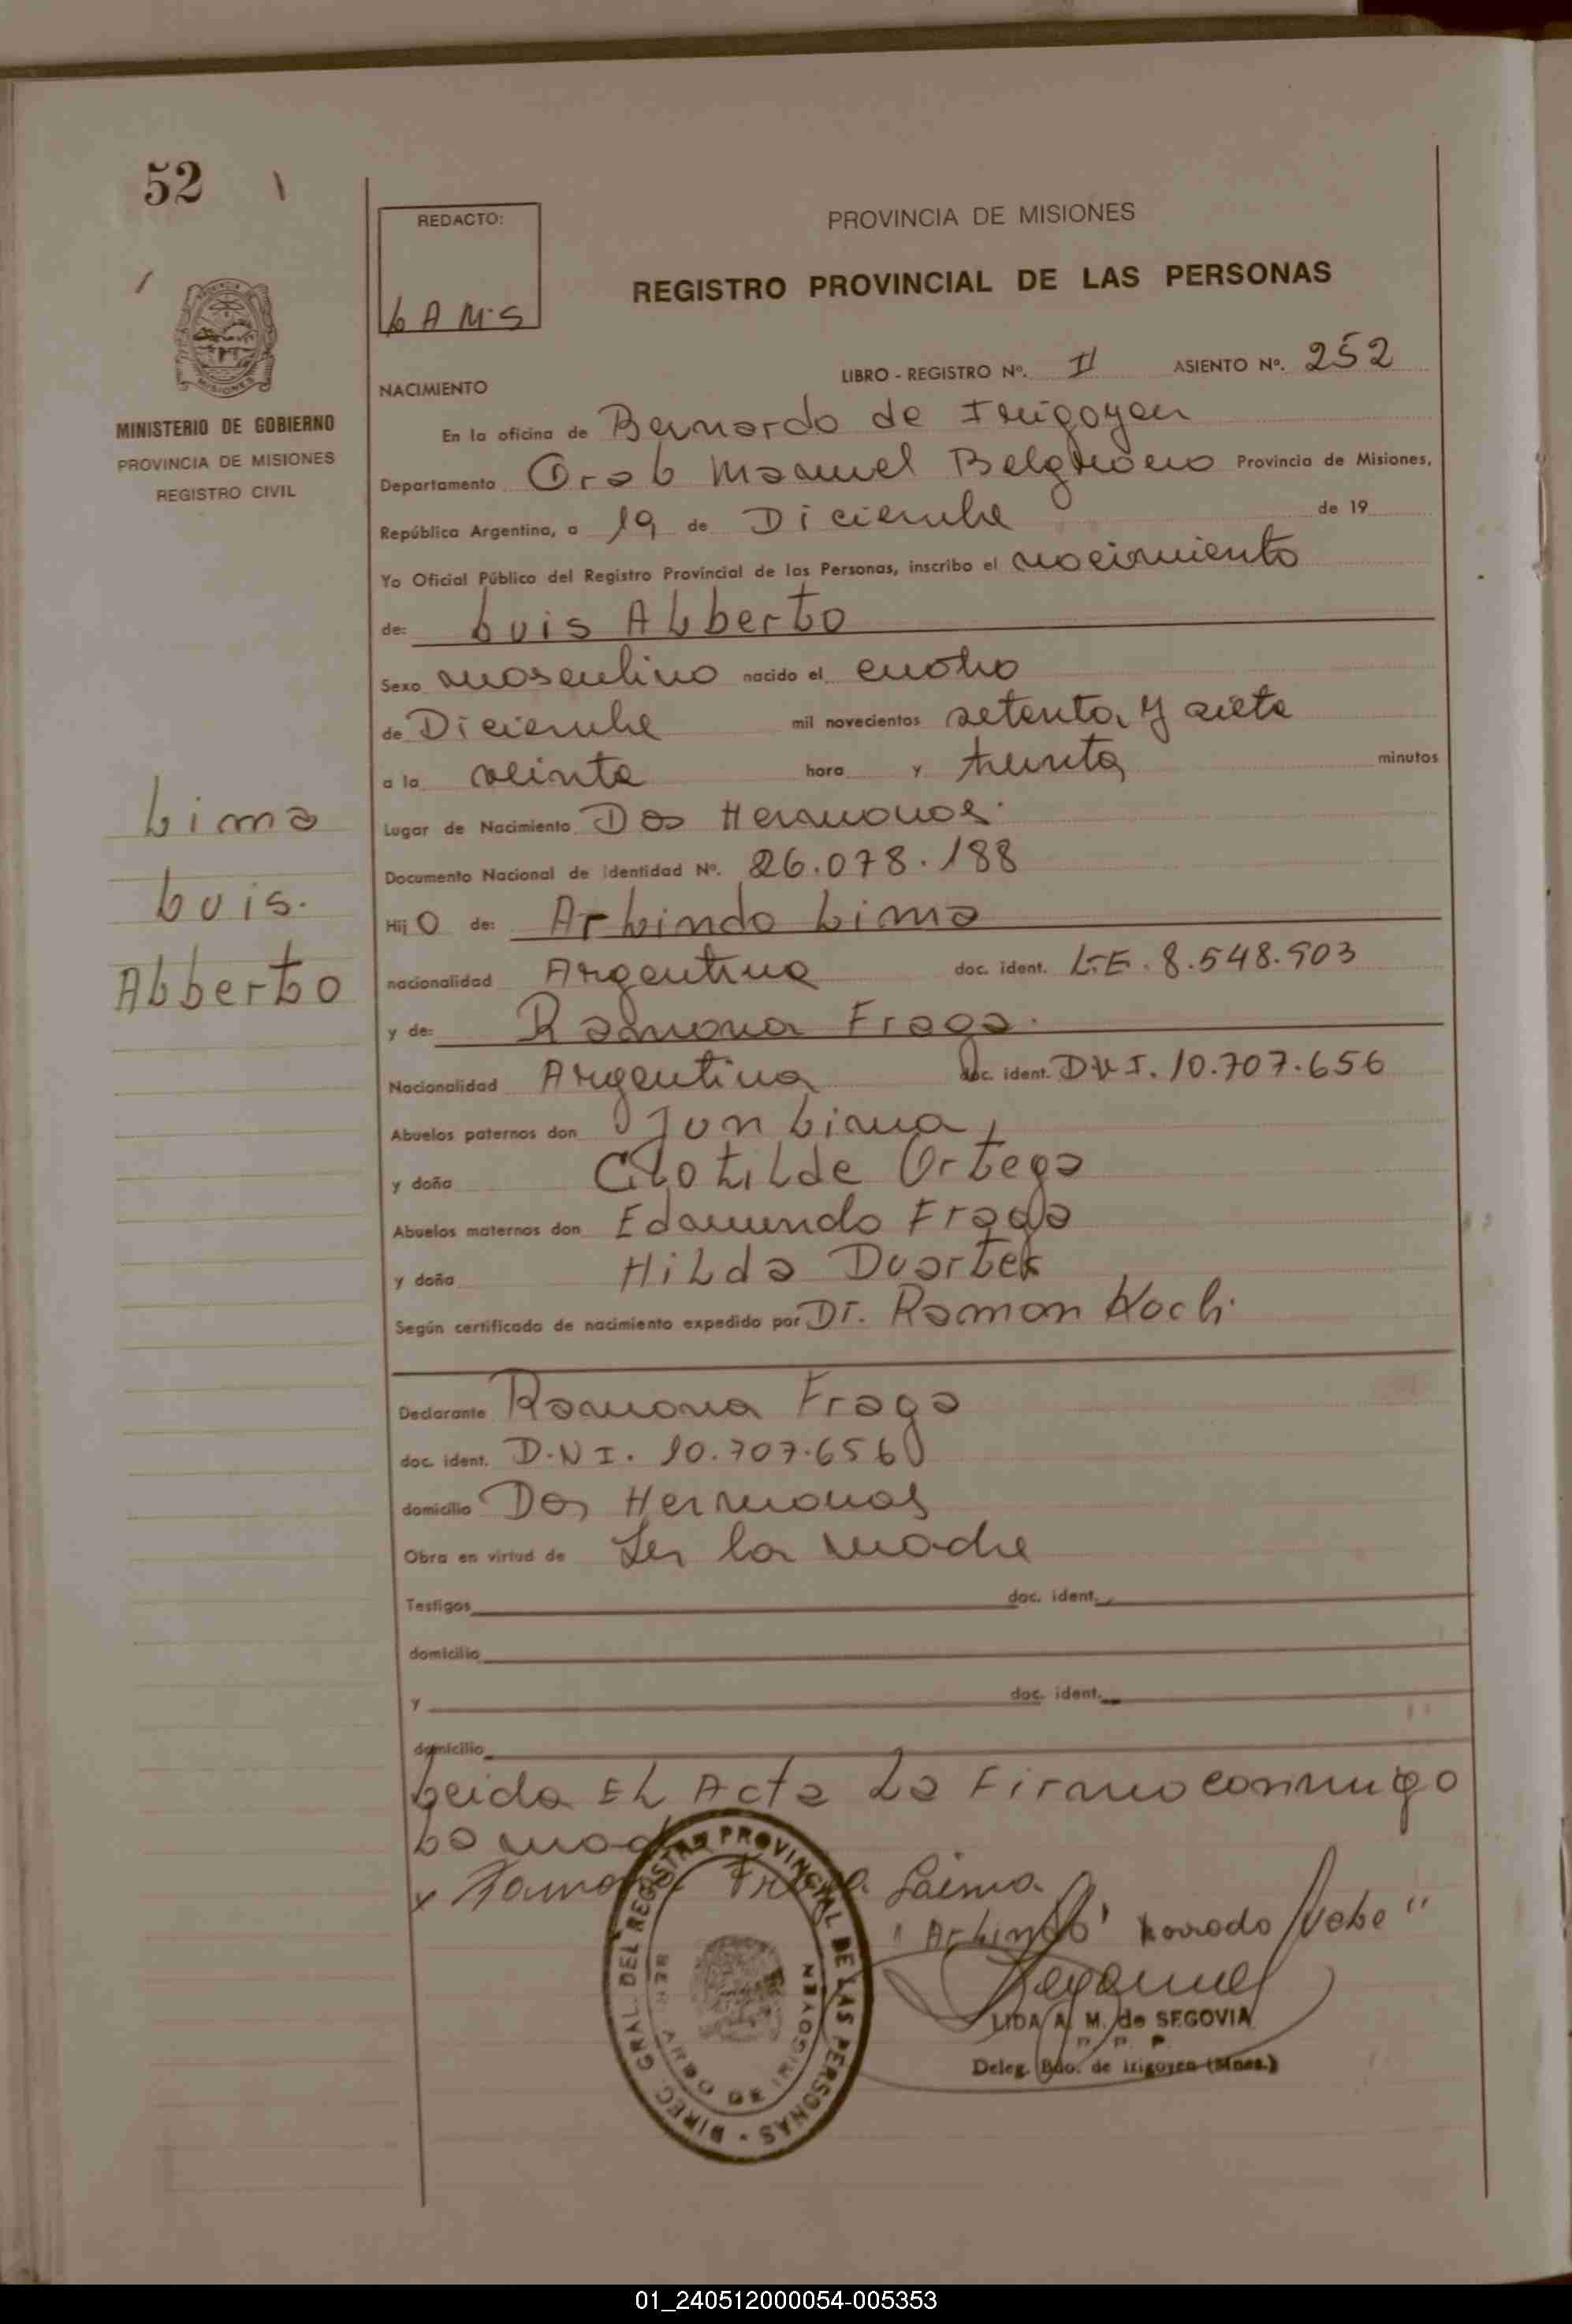 52
REDACTO:
L A M. S
PROVINCIA DE MISIONES
REGISTRO PROVINCIAL DE LAS PERSONAS
MINISTERIO DE GOBIERNO
PROVINCIA DE MISIONES
REGISTRO CIVIL
NACIMIENTO
LIBRO - REGISTRO Nº. II ASIENTO Nº. 252
En la oficina de Bernardo de Irigoyen
Departamento Gral Manuel Belgrano Provincia de Misiones,
República Argentina, a 19 de Diciembre de 19
Yo Oficial Público del Registro Provincial de las Personas, inscribo el nacimiento
de: Luis Alberto
Sexo masculino nacido el cuatro
de Diciembre mil novecientos setenta y siete
a la veinte hora y treinta minutos
Lugar de Nacimiento Dos Hermanas.
Documento Nacional de Identidad Nº. 26.078.188
Lima
Luis.
Alberto
Hij o de: Arlindo Lima
nacionalidad Argentina doc. ident. L.E. 8.548.903
y de: Ramona Fraga.
Nacionalidad Argentina doc. ident. D.N.I. 10.707.656
Abuelos paternos don Jun Lima
y doña Clotilde Ortega
Abuelos maternos don Edmundo Fraga
y doña Hilda Duarte
Según certificado de nacimiento expedido por Dr. Ramon Koch.
Declarante Ramona Fraga
doc. ident. D.N.I. 10.707.656
domicilio Dos Hermanas
Obra en virtud de Ser la madre
Testigos doc. ident.
domicilio
y doc. ident.
domicilio
Leida El Acta La Firma conmigo
La mad
x Ramona Fraga Laima
"Arlindo" borrado Vale"
LIDA A. M. de SEGOVIA
Deleg. Bdo. de Irigoyen (Mnes.)
DIREC. GRAL. DEL REGISTRO PROVINCIAL DE LAS PERSONAS
BERNARDO DE IRIGOYEN
01_240512000054-005353